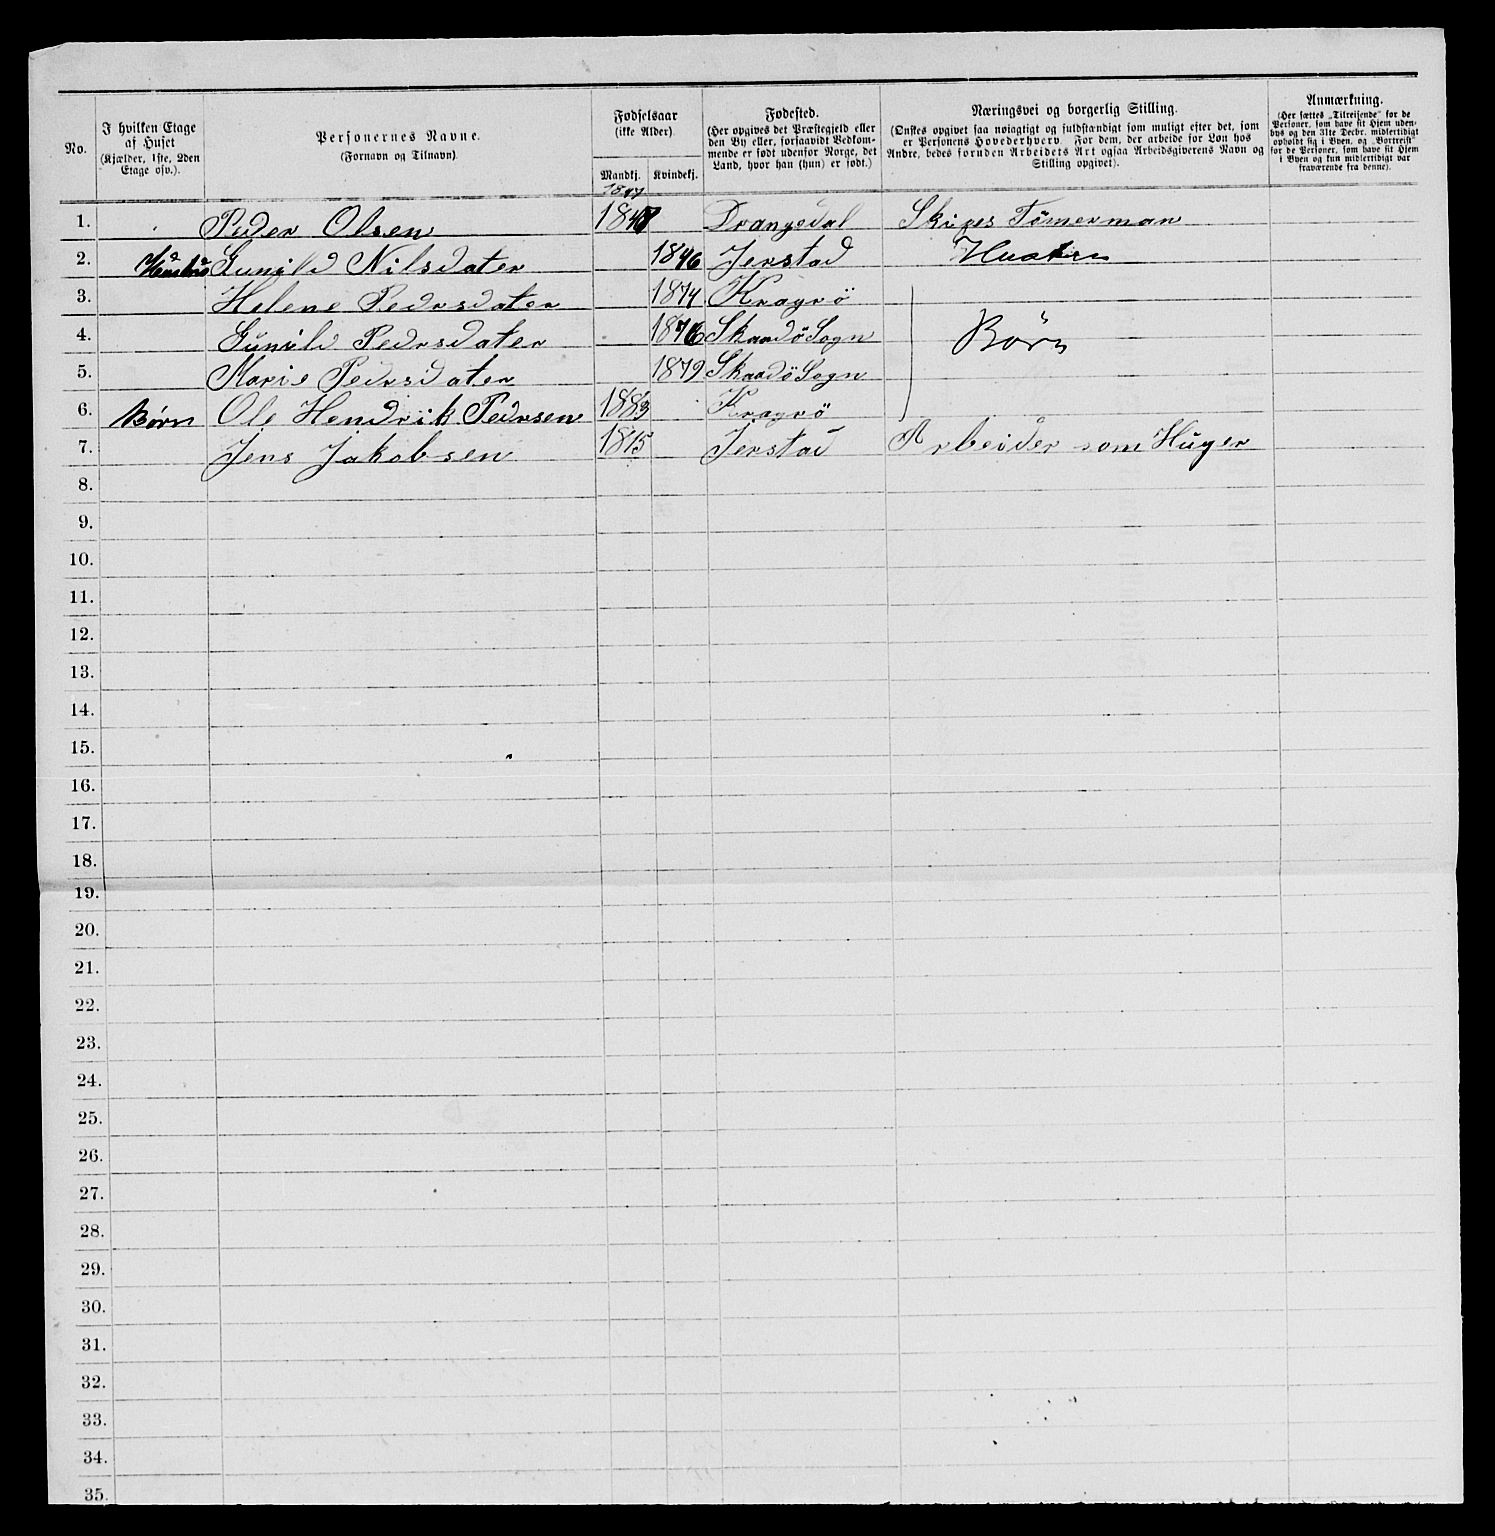 No.
I hvilken Etage
af Huset
(Kjælder, 1ste, 2den
Etage osv.).
Personernes Navne.
(Fornavn og Tilnavn)
Fødselsaar
(ikke Alder)
Mandkj.
Kvindekj.
Fødested.
(Her opgives det Præstegjeld eller
den By eller, forsaavidt Vedkom-
mende er født udenfor Norge, det
Land, hvor han (hun) er født.)
Næringsvei og borgerlig Stilling.
(Ønskes opgivet saa nøiagtigt og fuldstændigt som muligt efter det, som
er Personens Hovederhverv. For dem, der arbeide for Løn hos
Andre, bedes foruden Arbeidets Art ogsaa Arbeidsgiverens Navn og
Stilling opgivet).
Anmærkning.
(Her sættes „Tilreisende“ for de
Personer, som have sit Hjem uden-
bys og den 31te Decbr. midlertidigt
opholdt sig i Byen, og „Bortreist“
for de Personer, som have sit Hjem
i Byen og kun midlertidigt var
fraværende fra denne).
1847
1. Peder Olsen Drangedal Skibes Tömerman
2. Gunild Nilsdater 1846 Jerstad
3. Helene Pedrsdater 1874 Kragrö
4. Gunild Pedrsdater 1876 Skaadö Sogn Börn
5. Marie Pedrsdater 1879 Skaadö Sogn
6. Börn Ole Hendrik Pedrsen 1883 Kragrö
7. Jens Jakobsen 1815 Jerstad Arbeider som Huger
8.
9.
10.
11.
12.
13.
14.
15.
16.
17.
18.
19.
20.
21.
22.
23.
24.
25.
26.
27.
28.
29.
30.
31.
32.
33.
34.
35.